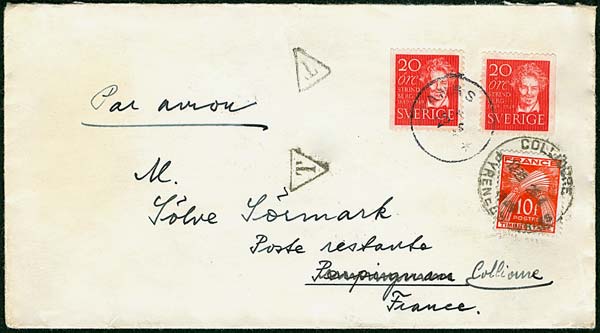 20 20
öre öre
STRIND STRIND
BERG BERG
SVERIGE SVERIGE
T
Par avion
T
COLLIOURE
FRANCE
10F
POSTES
TIMBRE TAXE
M.
Sölve Sörmark
Poste restante
Perpignan Collioure
France.